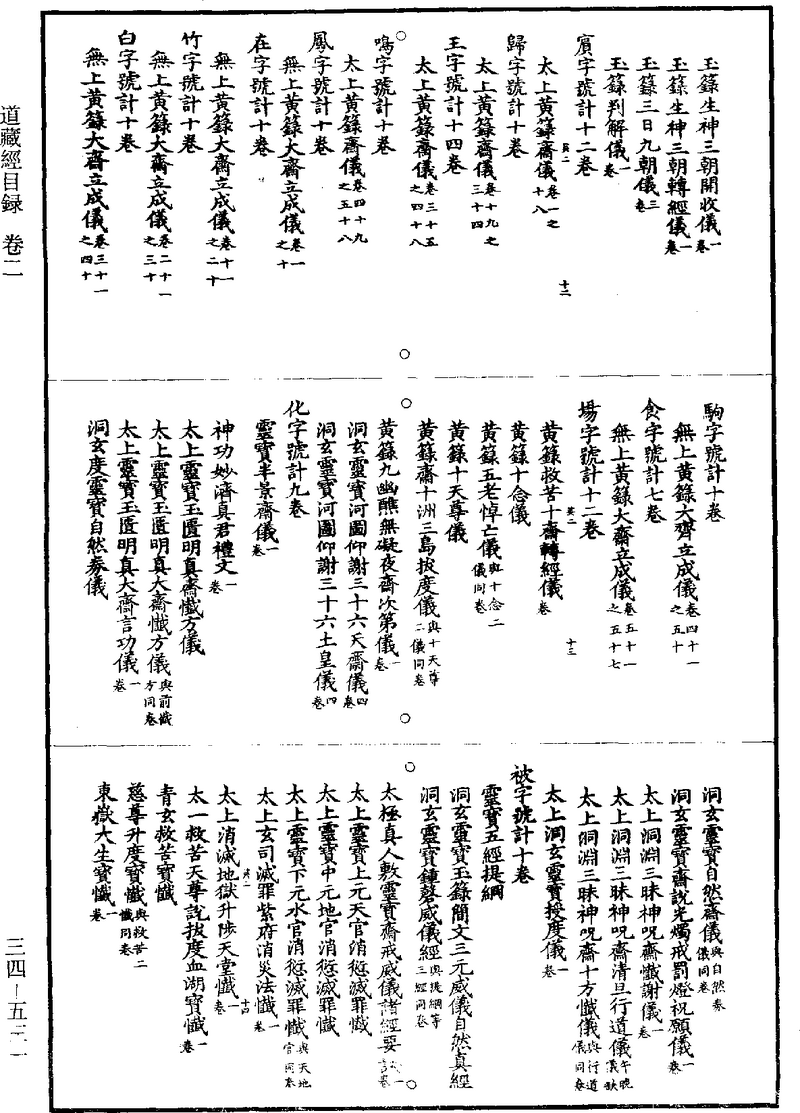 道藏經目録　卷二
玉籙生神三朝開收儀一卷
玉籙生神三朝轉經儀一卷
玉籙三日九朝儀三卷
玉籙判解儀一卷
賓字號計十二卷
太上黃籙齋儀卷一之十八
歸字號計十卷
太上黃籙齋儀卷十九之三十四
王字號計十四卷
太上黃籙齋儀卷三十五之四十八
鳴字號計十卷
太上黃籙齋儀卷四十九之五十八
鳳字號計十卷
無上黃籙大齋立成儀卷一之十
在字號計十卷
無上黃籙大齋立成儀卷十一之二十
竹字號計十卷
無上黃籙大齋立成儀卷二十一之三十
白字號計十卷
無上黃籙大齋立成儀卷三十一之四十
十二
駒字號計十卷
無上黃籙大齊立成儀卷四十一之五十
食字號計七卷
無上黃籙大齋立成儀卷五十一之五十七
場字號計十二卷
黃籙救苦十齋轉經儀一卷
黃籙十念儀
黃籙五老悼亡儀與十念二儀同卷
黃籙十天尊儀
黃籙齋十洲三島拔度儀與十天尊二儀同卷
黃籙九幽醮無礙夜齋次第儀一卷
洞玄靈寶河圖仰謝三十六天齋儀四卷
洞玄靈寶河圖仰謝三十六土皇儀四卷
化字號計九卷
靈寶半景齋儀一卷
神功妙濟真君禮文一卷
太上靈寶玉匱明真齋懺方儀
太上靈寶玉匱明真大齋懺方儀與前懺方同卷
太上靈寶玉匱明真大齋言功儀一卷
洞玄度靈寶自然券儀
十三
洞玄靈寶自然齋儀與自然券儀同卷
洞玄靈寶齋說光燭戒罰燈祝願儀一卷
太上洞淵三昧神呪齋懺謝儀一卷
太上洞淵三昧神呪齋清旦行道儀午晚儀缺
太上洞淵三昧神呪齋十方懺儀與行道儀同卷
太上洞玄靈寶授度儀一卷
被字號計十卷
靈寶五經提綱
洞玄靈寶玉籙簡文三元威儀自然真經
洞玄靈寶鍾磬威儀經與提綱等三經同卷
太極真人敷靈寶齋戒威儀諸經要訣一卷
太上靈寶上元天官消愆滅罪懺
太上靈寶中元地官消愆滅罪懺
太上靈寶下元水官消愆滅罪懺與天地官同卷
太上玄司滅罪紫府消災法懺一卷
太上消滅地獄升陟天堂懺一卷
太一救苦天尊說拔度血湖寶懺一卷
青玄救苦寶懺
慈尊升度寶懺與救苦二懺同卷
東嶽大生寶懺一卷
十四
三四—五二一